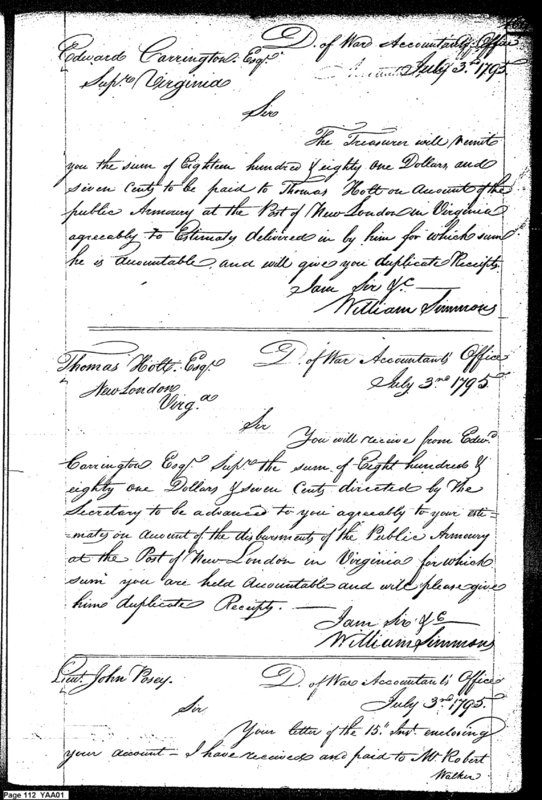 Edward Carrington Esqr. D. of War Accountants Office
Supr. Virginia July 3d. 1795
Sir
The Treasurer will remit
you the sum of Eighteen hundred & eighty one Dollars and
seven Cents to be paid to Thomas Holt on Account of the
public Armoury at the Post of New London in Virginia
agreeably to Estimate delivered in by him for which sum
he is accountable and will give you duplicate Receipts.
I am Sir &c —
William Simmons
Thomas Holt. Esqr. D. of War Accountants' Office
New London July 3rd 1795
Virga.
Sir
You will receive from Edwd.
Carrington Esqr. Supr. the sum of Eight hundred &
eighty one Dollars & seven Cents directed by the
Secretary to be advanced to you agreeably to your esti-
-mates on account of the disbursments of the Public Armoury
at the Post of New London in Virginia for which
sum you are held Accountable and will please give
him duplicate Receipts. —
I am Sir &c
William Simmons
Lieut. John Posey. D. of War Accountants' Office
July 3rd 1795
Sir
Your letter of the 15th. Inst. enclosing
your account – I have received and paid to Mr. Robert
Walker
Page 112 YAA01